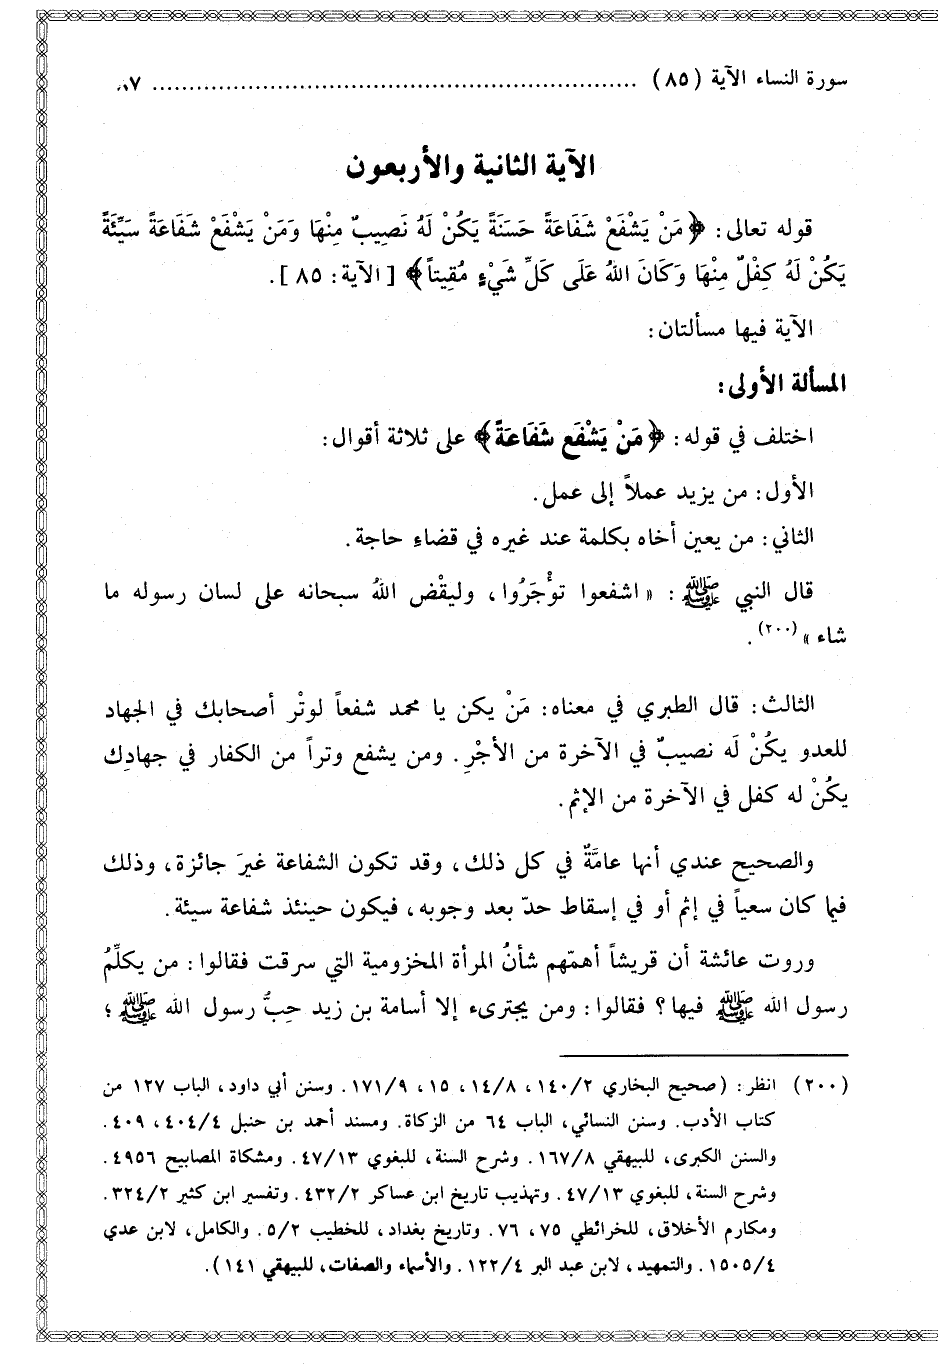 سورة النساء الآية (٨٥) ............................................................
الآية الثانية والأربعون
قوله تعالى: ﴿مَنْ يَشْفَعْ شَفَاعَةً حَسَنَةً يَكُنْ لَهُ نَصِيبٌ مِنْهَا وَمَنْ يَشْفَعْ شَفَاعَةً سَيِّئَةً
يَكُنْ لَهُ كِفْلٌ مِنْهَا وَكَانَ اللهُ عَلَى كَلِّ شَيْءٍ مُقِيتاً﴾ [الآية: ٨٥].
الآية فيها مسألتان:
المسألة الأولى:
اختلف في قوله: ﴿مَنْ يَشْفَع شَفَاعَةً﴾ على ثلاثة أقوال:
الأول: من يزيد عملاً إلى عمل.
الثاني: من يعين أخاه بكلمة عند غيره في قضاءِ حاجة.
قال النبي ﷺ: «اشفعوا تؤْجَرُوا، وليقْض اللهُ سبحانه على لسان رسوله ما
شاء»(٢٠٠).
الثالث: قال الطبري في معناه: مَنْ يكن يا محمد شفعاً لوتْر أصحابك في الجهاد
للعدو يكُنْ لَه نصيبٌ في الآخرة من الأجْرِ. ومن يشفع وتراً من الكفار في جهادِك
يكُنْ له كفل في الآخرة من الإثم.
والصحيح عندي أنها عامَّةٌ في كل ذلك، وقد تكون الشفاعة غيرَ جائزة، وذلك
فيما كان سعياً في إثم أو في إسقاط حدّ بعد وجوبه، فيكون حينئذ شفاعة سيئة.
وروت عائشة أن قريشاً أهمّهم شأنُ المرأة المخزومية التي سرقت فقالوا: من يكلِّمُ
رسول الله ﷺ فيها؟ فقالوا: ومن يجترىء إلا أسامة بن زيد حِبُّ رسول الله ﷺ؛
(٢٠٠) انظر: (صحيح البخاري ١٤٠/٢، ١٤/٨، ١٥، ١٧١/٩. وسنن أبي داود، الباب ١٢٧ من
كتاب الأدب. وسنن النسائي، الباب ٦٤ من الزكاة. ومسند أحمد بن حنبل ٤٠٤/٤، ٤٠٩.
والسنن الكبرى، للبيهقي ١٦٧/٨. وشرح السنة، للبغوي ٤٧/١٣. ومشكاة المصابيح ٤٩٥٦.
وشرح السنة، للبغوي ٤٧/١٣. وتهذيب تاريخ ابن عساكر ٤٣٢/٢. وتفسير ابن كثير ٣٢٤/٢.
ومكارم الأخلاق، للخرائطي ٧٥، ٧٦. وتاريخ بغداد، للخطيب ٥/٢. والكامل، لابن عدي
١٥٠٥/٤. والتمهيد، لابن عبد البر ١٢٢/٤. والأسماء والصفات، للبيهقي ١٤١).